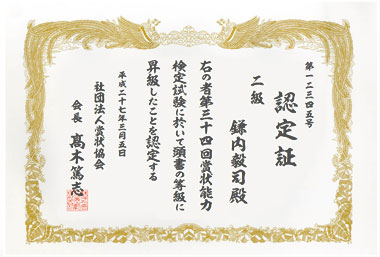 第一二三四五号
認定証
二級
鎌内毅司殿
右の者第三十四回賞状能力
検定試験に於いて頭書の等級に
昇級したことを認定する
平成二十七年三月五日
社団法人賞状協会
会長 髙木篤志